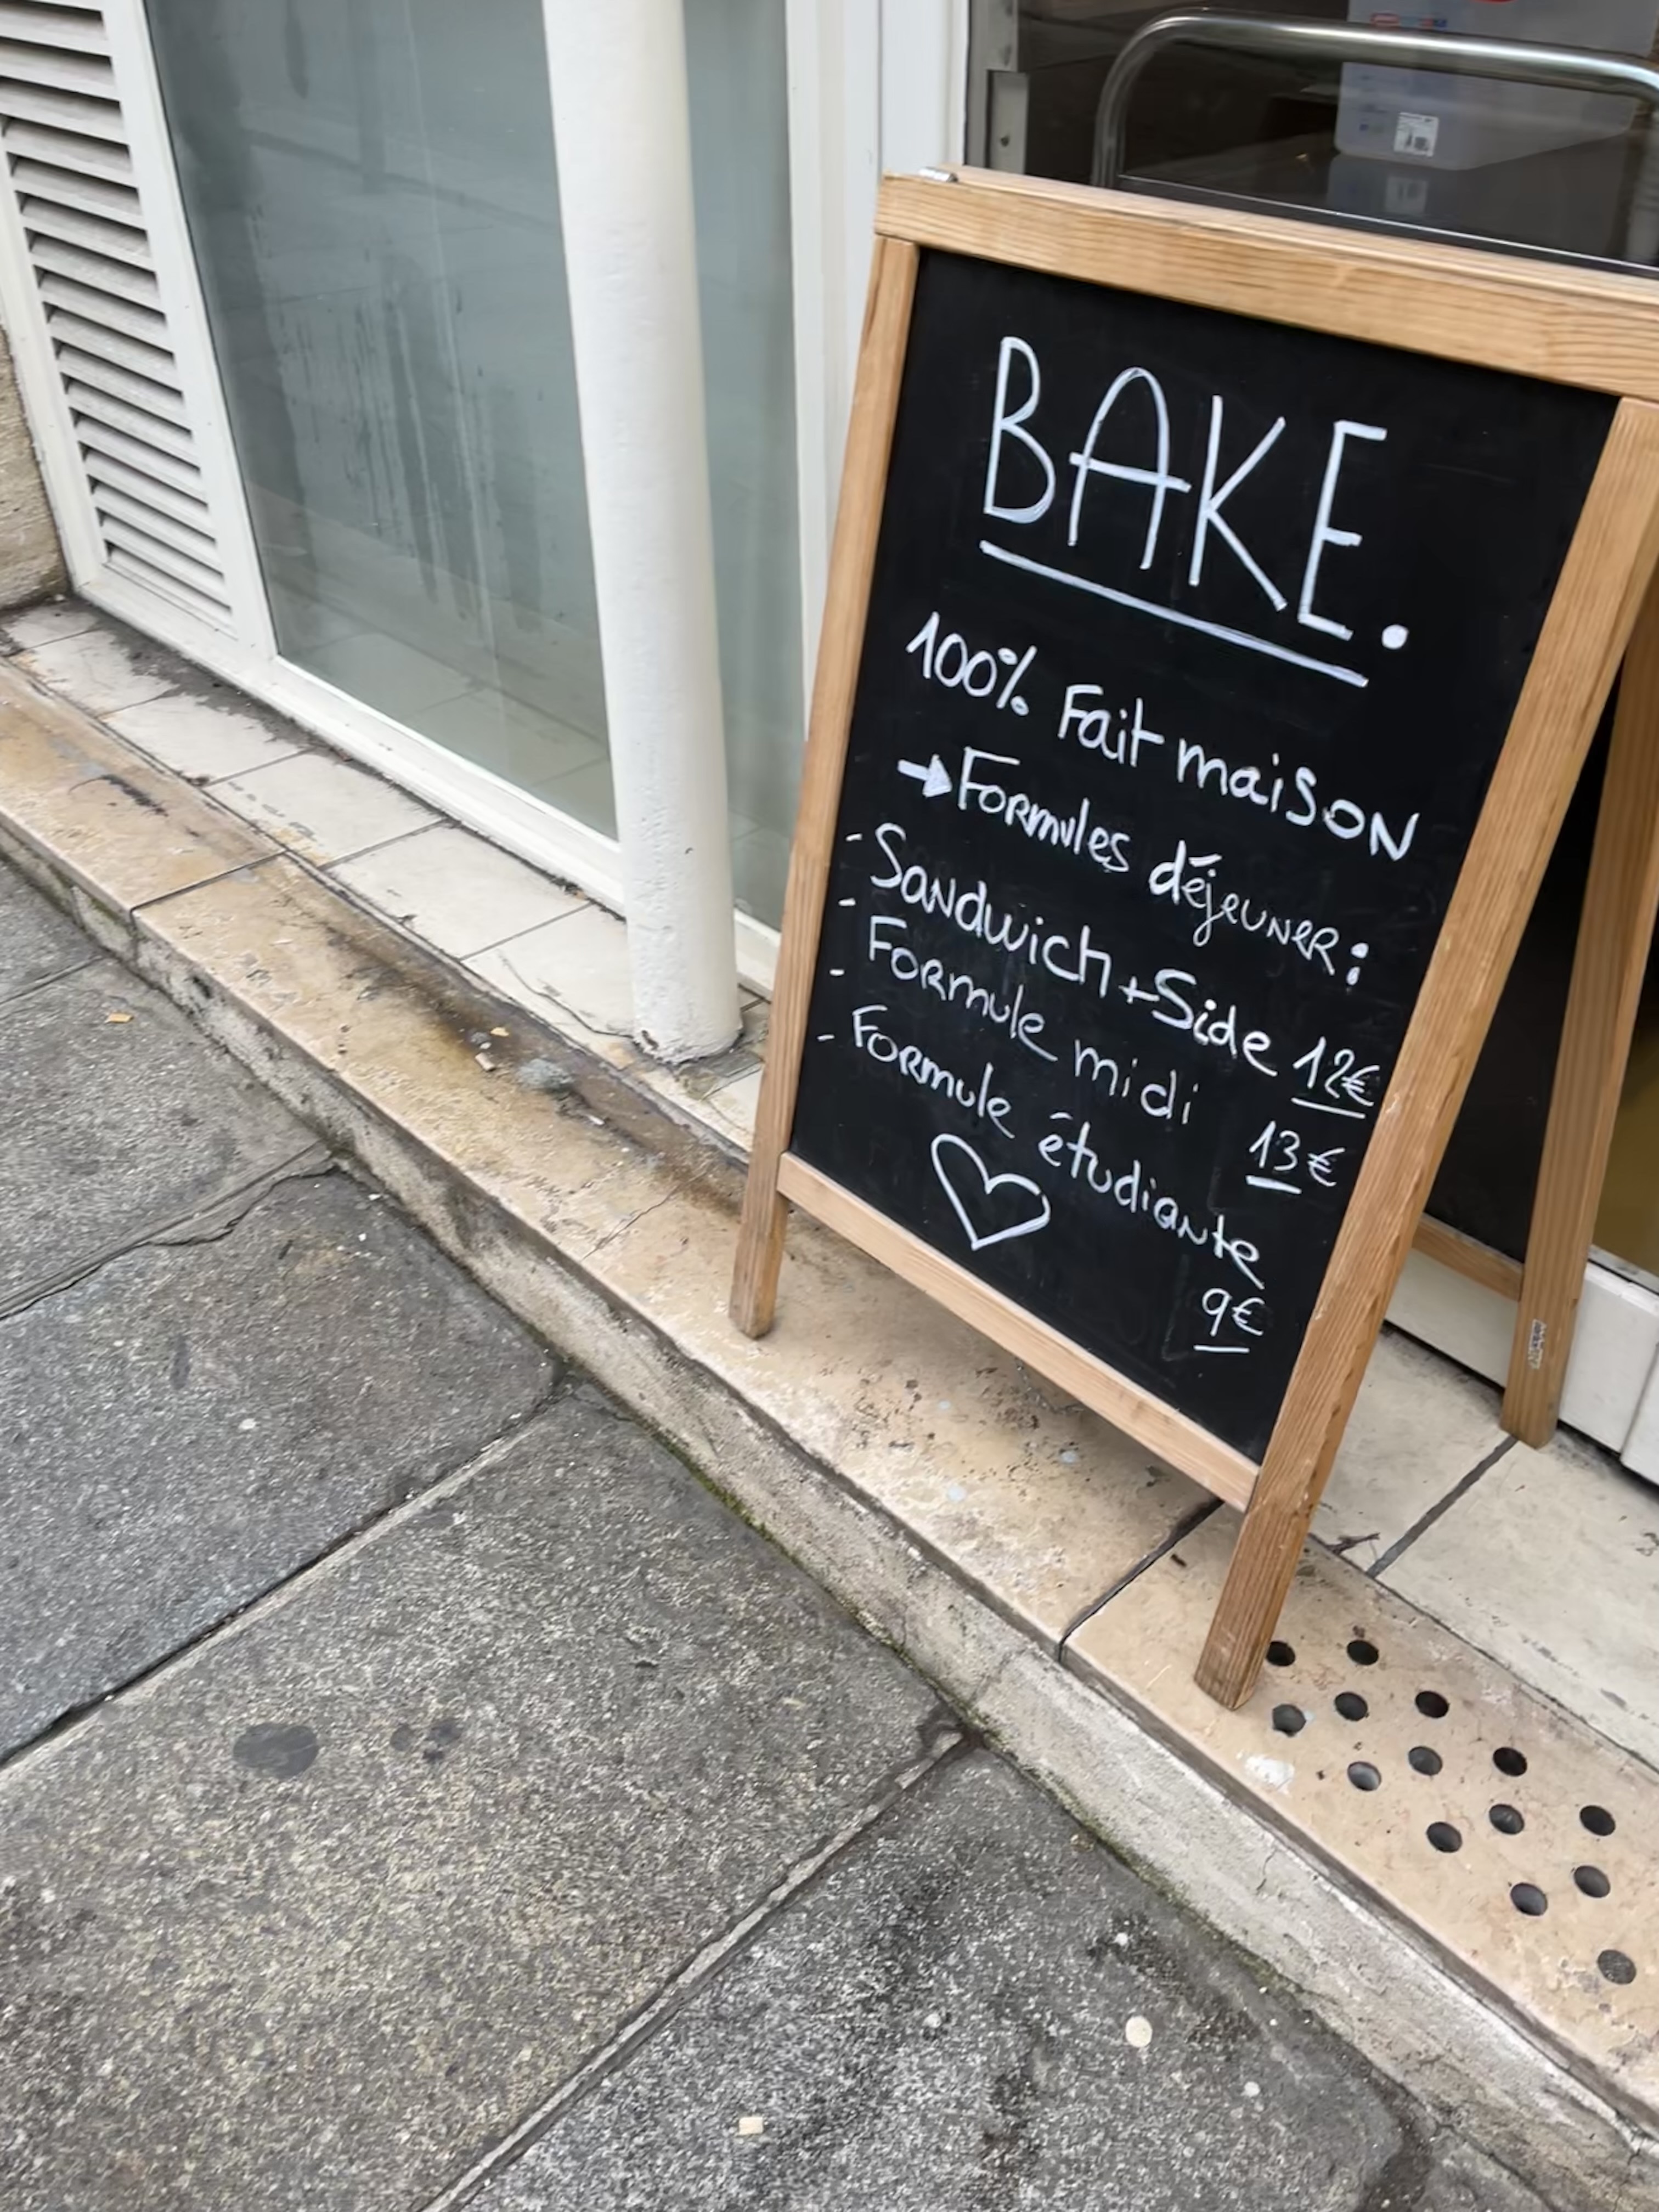 BAKE.
100% Fait maison
→ Formules déjeuner :
- Sandwich + Side 12€
- Formule midi 13€
- Formule étudiante
9€